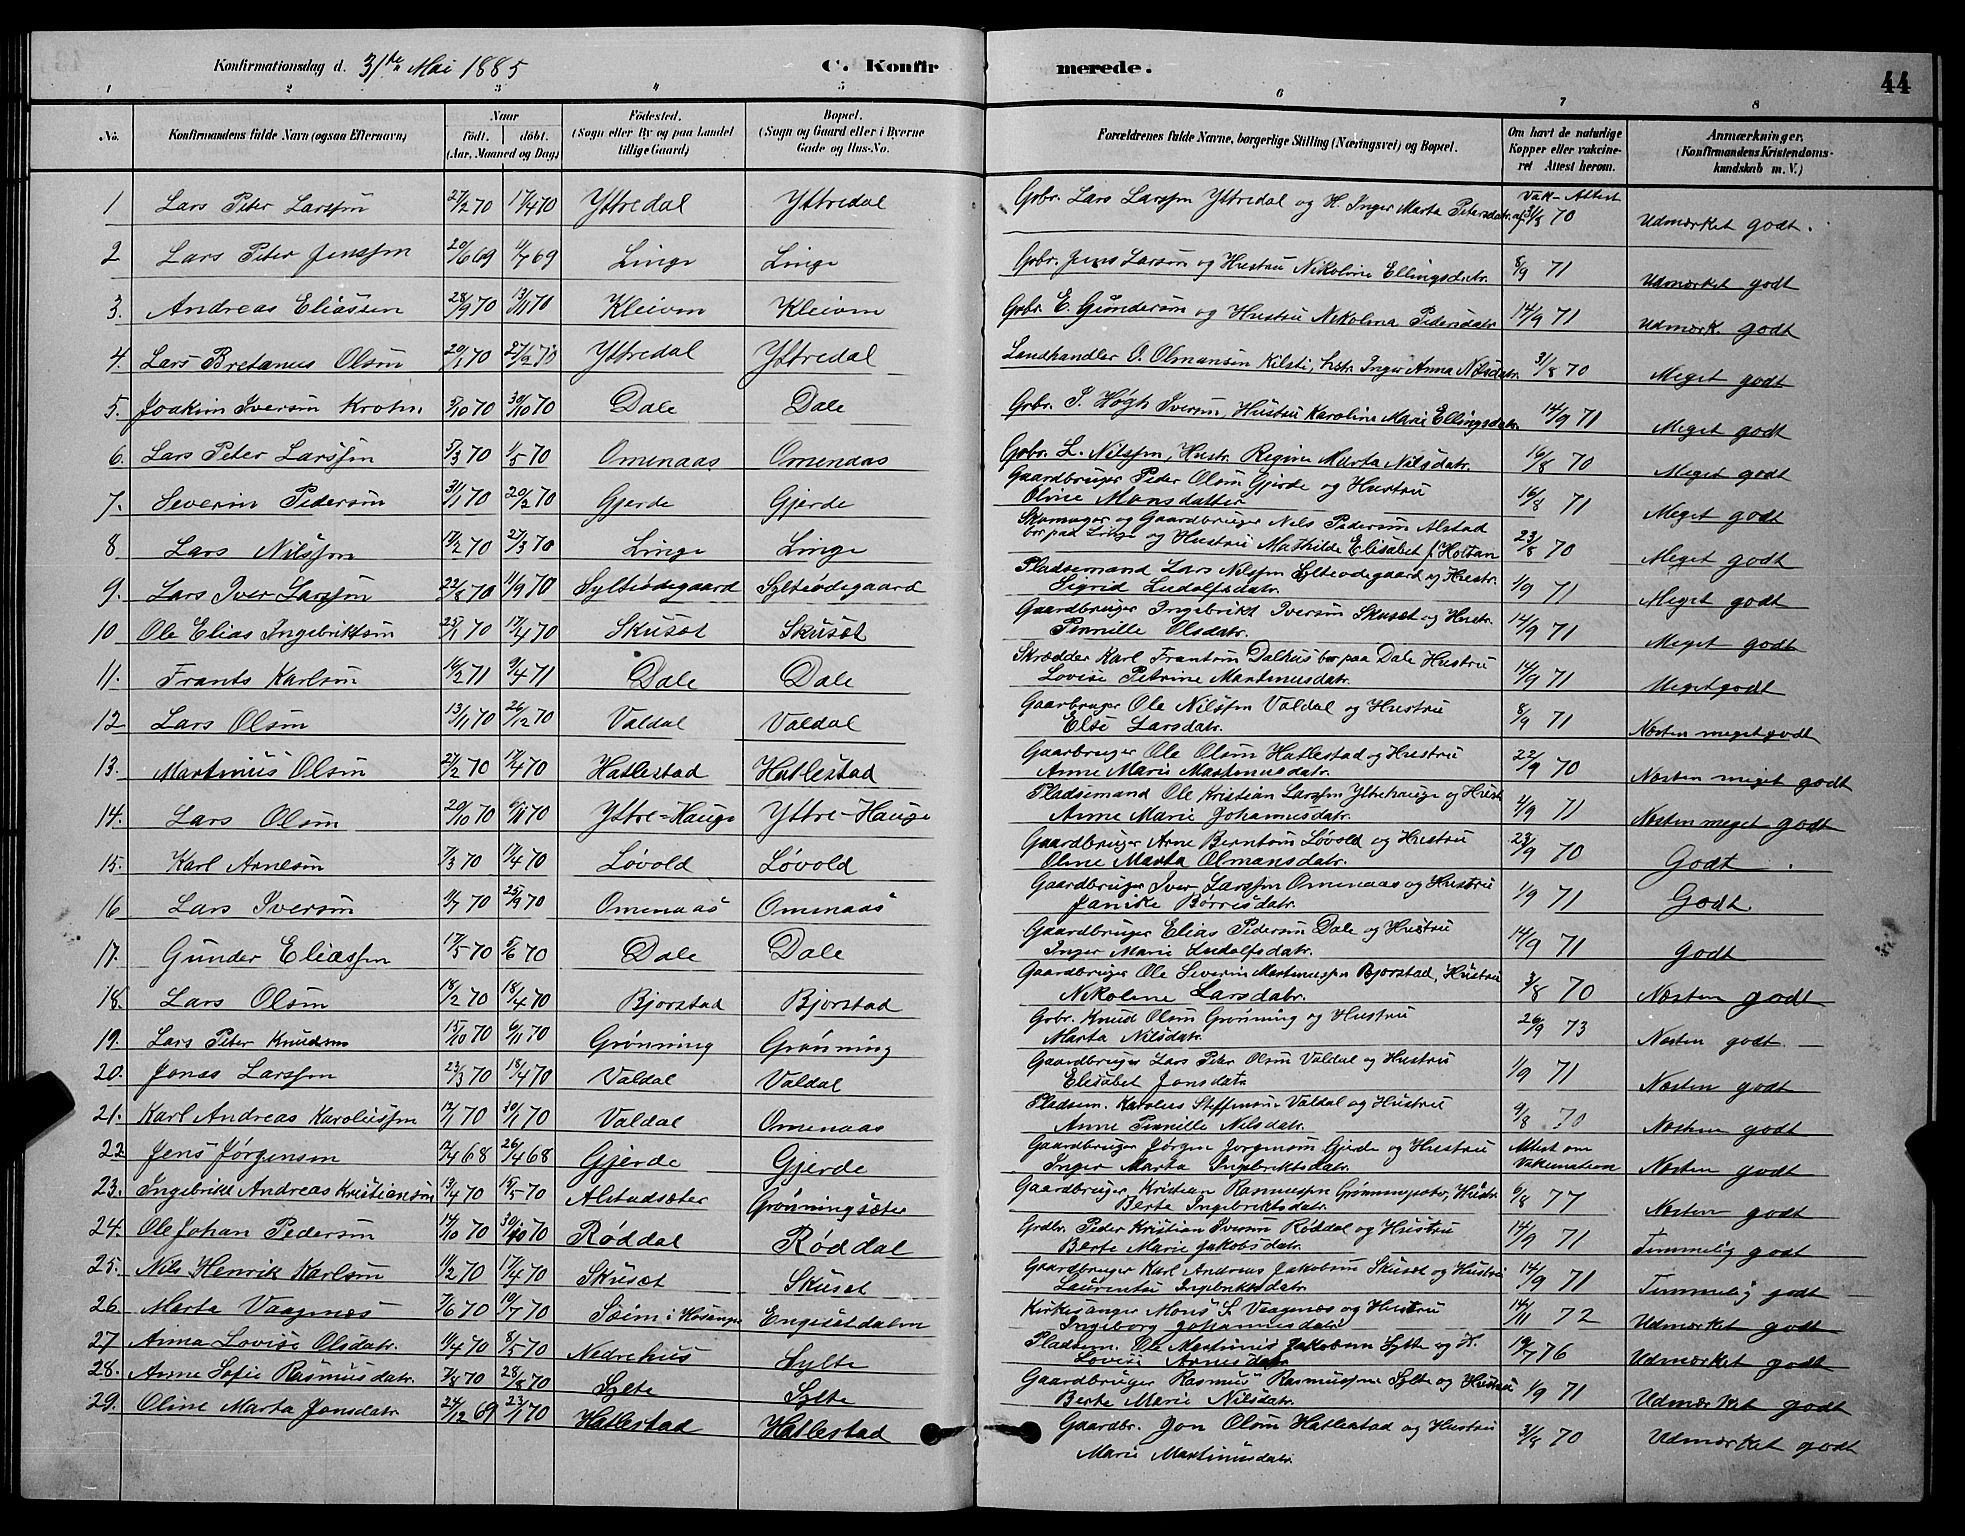 Konfirmationsdag d. 31te Mai 1885 C. Konfirmerede. 44
1 2 3 4 5 6 7 8
No. Konfirmandens fulde Navn (ogsaa Efternavn) Naar født. døbt. (Aar, Maaned og Dag) Fødested. (Sogn eller By og paa Landet tillige Gaard) Bopæl. (Sogn og Gaard eller i Byerne Gade og Hus-No. Forældrenes fulde Navne, borgerlige Stilling (Næringsvei) og Bopæl. Om havt de naturlige Kopper eller vakcineret Attest herom. Anmærkninger. (Konfirmandens Kristendomskundskab m. V.)
1 Lars Peter Larssøn 27/2 70 17/4 70 Yttredal Yttredal Gbr. Lars Larssøn Yttredal og H. Inger Marta Petersdatr. Vak-Attest af 31/8 70 Udmærket godt.
2 Lars Peter Jenssøn 20/6 69 11/7 69 Linge Linge Gbr. Jens Larsøn og Hustru Nikoline Ellingsdatr. 8/9 71 Udmærket godt
3. Andreas Eliassen 28/9 70 13/11 70 Kleivøn Kleivøn Gbr. E. Gundersøn og Hustru Nikolina Pedersdatr 14/9 71 Udmærk. godt
4. Lars Bretanus Olsøn 20/1 70 27/2 70 Yttredal Yttredal Landhandler O. Olmansøn Kilsti, hstr. Inger Anna Nilsdatr. 31/8 70 Meget godt
5. Joakim Iversøn Krohn 5/10 70 30/10 70 Dale Dale Gbr. I. Høgh Iversøn, Hustru Karoline Marie Ellingsdatr. 14/9 71 Meget godt
6. Lars Peter Larssøn 5/3 70 1/5 70 Omenaas Omenaas Gbr. L. Nilssøn, Hustr. Regine Marta Nilsdatr. 16/8 70 Meget godt
7. Severin Pedersøn 31/1 70 20/2 70 Gjerde Gjerde Gaardbruger Peter Olsøn Gjerde og Hustru Oline Monsdatter 16/8 71 Meget godt
8 Lars Nilssøn 12/2 70 27/3 70 Linge Linge Skomager og Gaardbruger Nils Pedersøn Alstad bor paa Linge og Hustru Mathilde Elisabet f. Holtan 23/8 70 Meget godt
9. Lars Iver Larssøn 22/8 70 11/9 70 Sylteødegaard Sylteødegaard Pladsemand Lars Nilssøn Sylteødegaard og Hustr. Sigrid Ludolfsdatr. 1/9 71 Meget godt
10 Ole Elias Ingebriktsøn 25/1 70 17/4 70 Skuset Skuset Gaardbruger Ingebrikt Iversøn Skuset og Hustr. Pernille Olsdatr. 14/9 71 Meget godt
11. Frants Karlsøn 16/2 71 9/4 71 Dale Dale Skrædder Karl Frantsøn Dalhus bor paa Dale Hustru Lovise Petrine Martinusdatr. 14/9 71 Meget godt
12 Lars Olsøn 13/11 70 26/12 70 Valdal Valdal Gaarbruger Ole Nilssøn Valdal og Hustru Else Larsdatr. 8/9 71 Næsten meget godt
13. Martinus Olsøn 27/2 70 17/4 70 Hatlestad Hatlestad Gaarbruger Ole Olsøn Hatlestad og Hustru Anne Marie Martinusdatr. 22/9 70 Næsten meget godt
14. Lars Olsøn 20/10 70 6/11 70 Yttre-Hauge Yttre-Hauge Pladsemand Ole Kristian Larssøn Yttrehauge og Hustr Anne Marie Johannesdatr. 4/9 71 Næsten meget godt
15. Karl Arnesøn 7/3 70 17/4 70 Løvold Løvold Gaardbruger Arne Berntsøn Løvold og Hustru Oline Marta Olmansdatr. 23/9 70 Godt.
16 Lars Iversøn 11/7 70 25/9 70 Omenaas Omenaas Gaardbruger Iver Larssøn Omenaas og Hustru Janike Børresdatr. 1/9 71 Godt
17. Gunder Eliassøn 17/5 70 5/6 70 Dale Dale Gaardbruger Elias Pedersøn Dale og Hustru Inger Marie Ludolfsdatr. 14/9 71 godt
18. Lars Olsøn 18/2 70 18/4 70 Bjorstad Bjorstad Gaardbruger Ole Severin Martinussøn Bjorstad, Hustru Nikoline Larsdatr. 3/8 70 Næsten godt
19. Lars Peter Knudsøn 15/10 70 6/11 70 Grønning Grønning Gbr. Knud Olsøn Grønning og Hustru Marta Nilsdatr. 26/9 73 Næsten godt
20. Jonas Larssøn 23/3 70 18/4 70 Valdal Valdal Gaardbruger Lars Peter Olsøn Valdal og Hustru Elisabet Jonsdatr 1/9 71 Næsten godt
21. Karl Andreas Karoliussøn 12/7 70 30/7 70 Valdal Omenaas Pladsem. Karolius Steffensøn Valdal og Hustru Anne Pernille Nilsdatr. 9/8 70 Næsten godt
22 Jens Jørgensøn 12/4 68 26/4 68 Gjerde Gjerde Gaardbruger Jørgen Jørgensøn Gjerde og Hustru Inger Marta Ingebriktsdatr. Attest om Vakcination Næsten godt
23. Ingebrikt Andreas Kristiansøn 13/4 70 15/5 70 Alstadsæter Grønningsæter Gaardbruger Kristian Rasmussøn Grønningsæter, Hustr. Berte Ingebriktsdatr. 6/8 77 Næsten godt
24. Ole Johan Pedersøn 14/10 70 30/10 70 Røddal Røddal Grdbr. Peder Kristian Iversøn Røddal og Hustru Berte Marie Jakobsdatr. 14/9 71 Temmelig godt
25. Nils Henrik Karlsøn 11/2 70 17/4 70 Skuset Skuset Gaardbruger Karl Andreas Jakobsøn Skuset og Hustru Laurentse Ingebriktsdatr 14/9 71 Temmelig godt
26. Marta Vaagnæs 7/6 70 10/7 70 Seim i Hosanger Engesetdalen Kirkesanger Mons S. Vaagnæs og Hustru Ingeborg Johannesdatr 14/11 72 Udmærket godt
27 Anna Lovise Olsdatr. 14/4 70 8/5 70 Nedrehus Sylte Pladsem. Ole Martinus Jakobsøn Sylte og H. Lovise Arnesdatr 19/7 76 Udmærket godt
28. Anne Sofie Rasmusdatr. 7/8 70 28/8 70 Sylte Sylte Gaardbruger Rasmus Rasmussøn Sylte og Hustru Berte Marie Nilsdatr. 1/9 71 Udmærket godt
29. Oline Marta Jonsdatr. 24/12 69 23/1 70 Hatlestad Hatlestad Gaardbr. Jon Olsøn Hatlestad og Hustru Marie Martinusdatr. 31/8 70 Udmærket godt